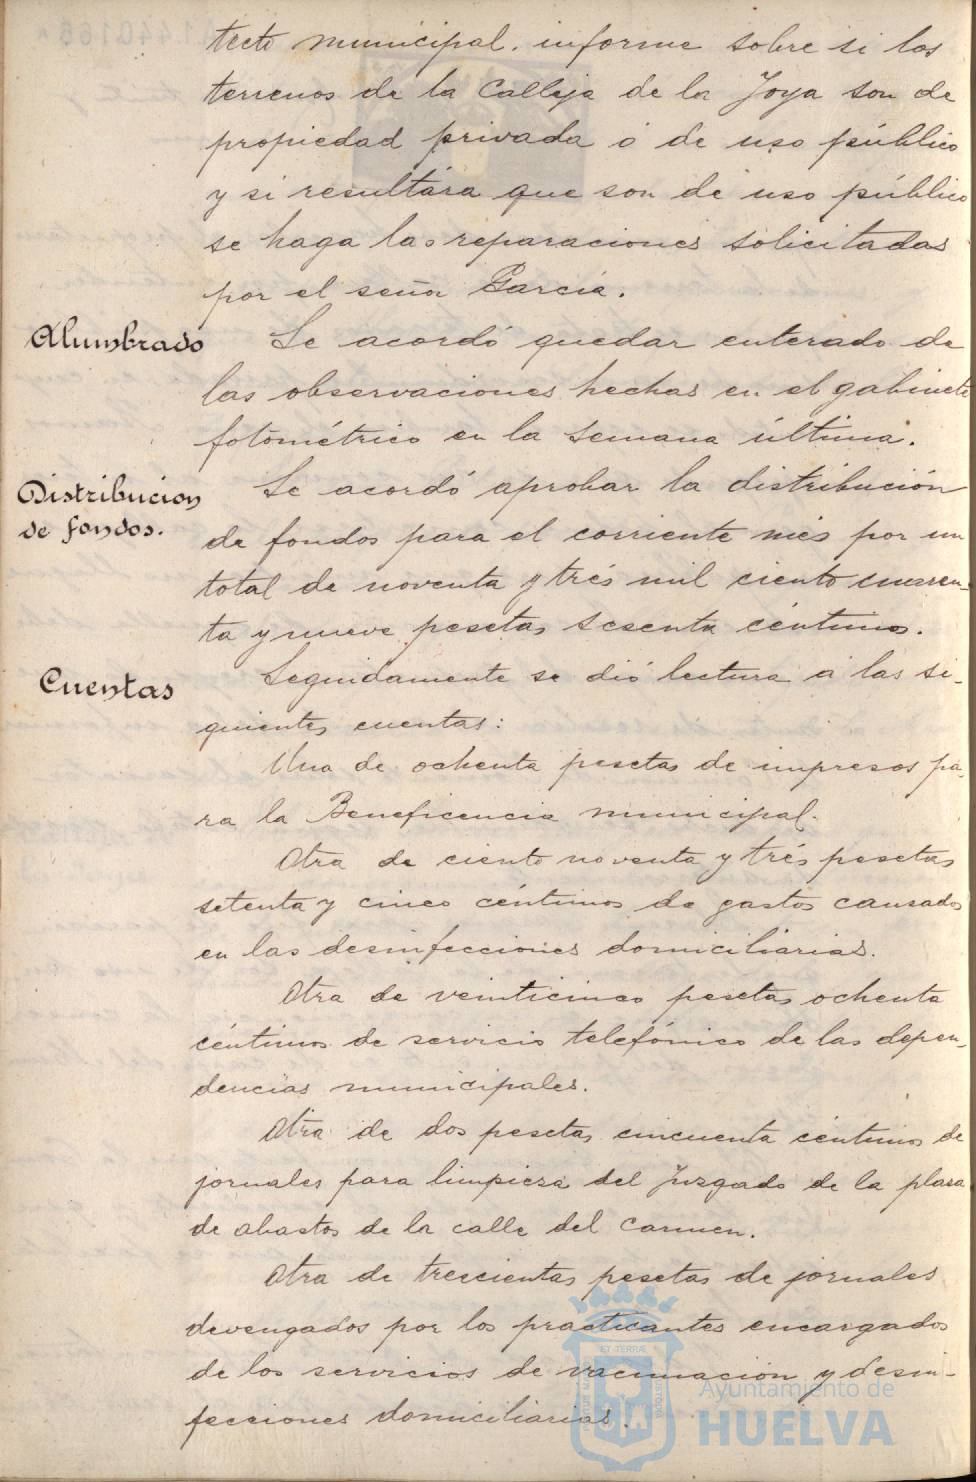 tecto municipal. informe sobre si los
terrenos de la Calleja de la Joya son de
propiedad privada ó de uso público
y si resultára que son de uso público
se haga las reparaciones solicitadas
por el señor Garcia.
Alumbrado
Se acordó quedar enterado de
las observaciones hechas en el gabinete
fotométrico en la semana última.
Distribucion
de fondos.
Se acordó aprobar la distribución
de fondos para el corriente més por un
total de noventa y trés mil ciento cuaren-
ta y nueve pesetas sesenta céntimos.
Cuentas
Seguidamente se dió lectura á las si-
guientes cuentas:
Una de ochenta pesetas de impresos pa-
ra la Beneficencia municipal.
Otra de ciento noventa y trés pesetas
setenta y cinco céntimos de gastos causados
en las desinfecciones domiciliarias.
Otra de veinticinco pesetas ochenta
céntimos de servicio telefónico de las depen-
dencias municipales.
Otra de dos pesetas cincuenta céntimos de
jornales para limpieza del Juzgado de la plasa
de abastos de la calle del Carmen.
Otra de trescientas pesetas de jornales
devengados por los practicantes encargados
de los servicios de vacunación y desin-
fecciones domiciliarias.
Ayuntamiento de
HUELVA